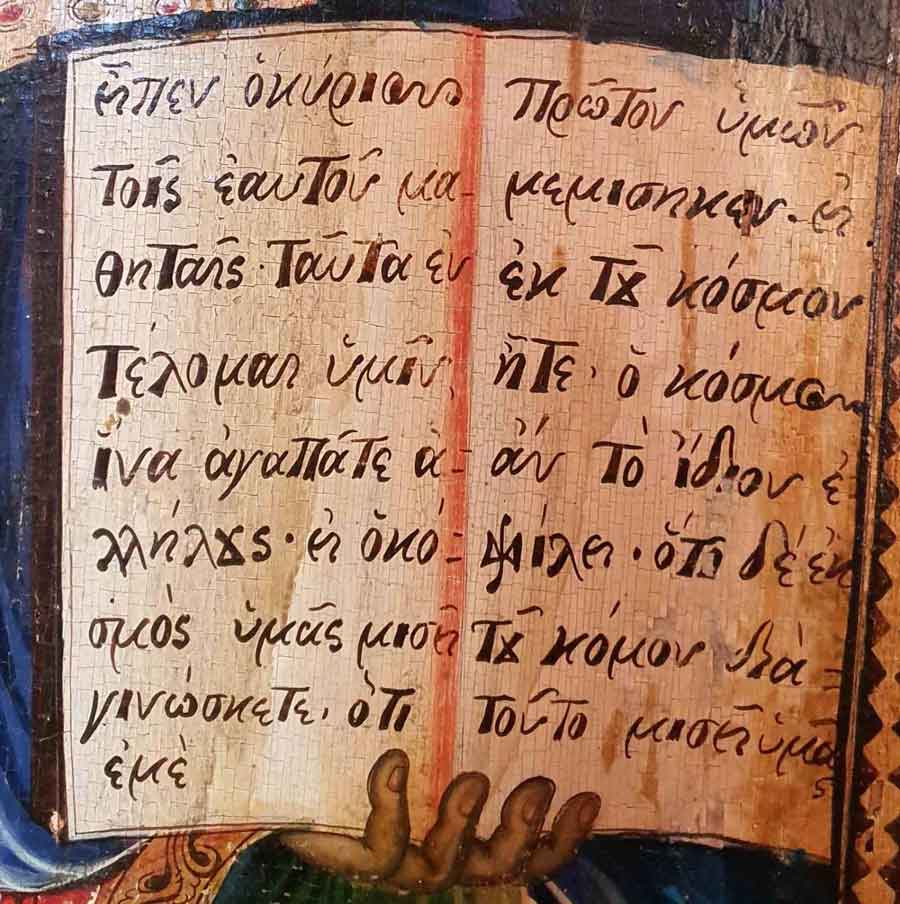 εἶπεν ὁ κύριος
τοῖς ἑαυτοῦ μα-
θηταῖς· Ταῦτα ἐν
τέλομαι ὑμῖν,
ἵνα ἀγαπᾶτε ἀ-
λλήλȣς· εἰ ὁ κό-
σμὸς ὑμᾶς μισεῖ
γινώσκετε, ὅτι
ἐμὲ
Πρῶτον ὑμῶν
μεμισηκεν. εἰ
ἐκ τȣ͂ κόσμου
ἦτε, ὁ κόσμος
ἄν τὸ ἴδιον ἐ-
φίλει· ὅτι δέ ἐκ
τȣ͂ κόμου διὰ-
τοῦτο μισεῖ ὑμᾶ
ς